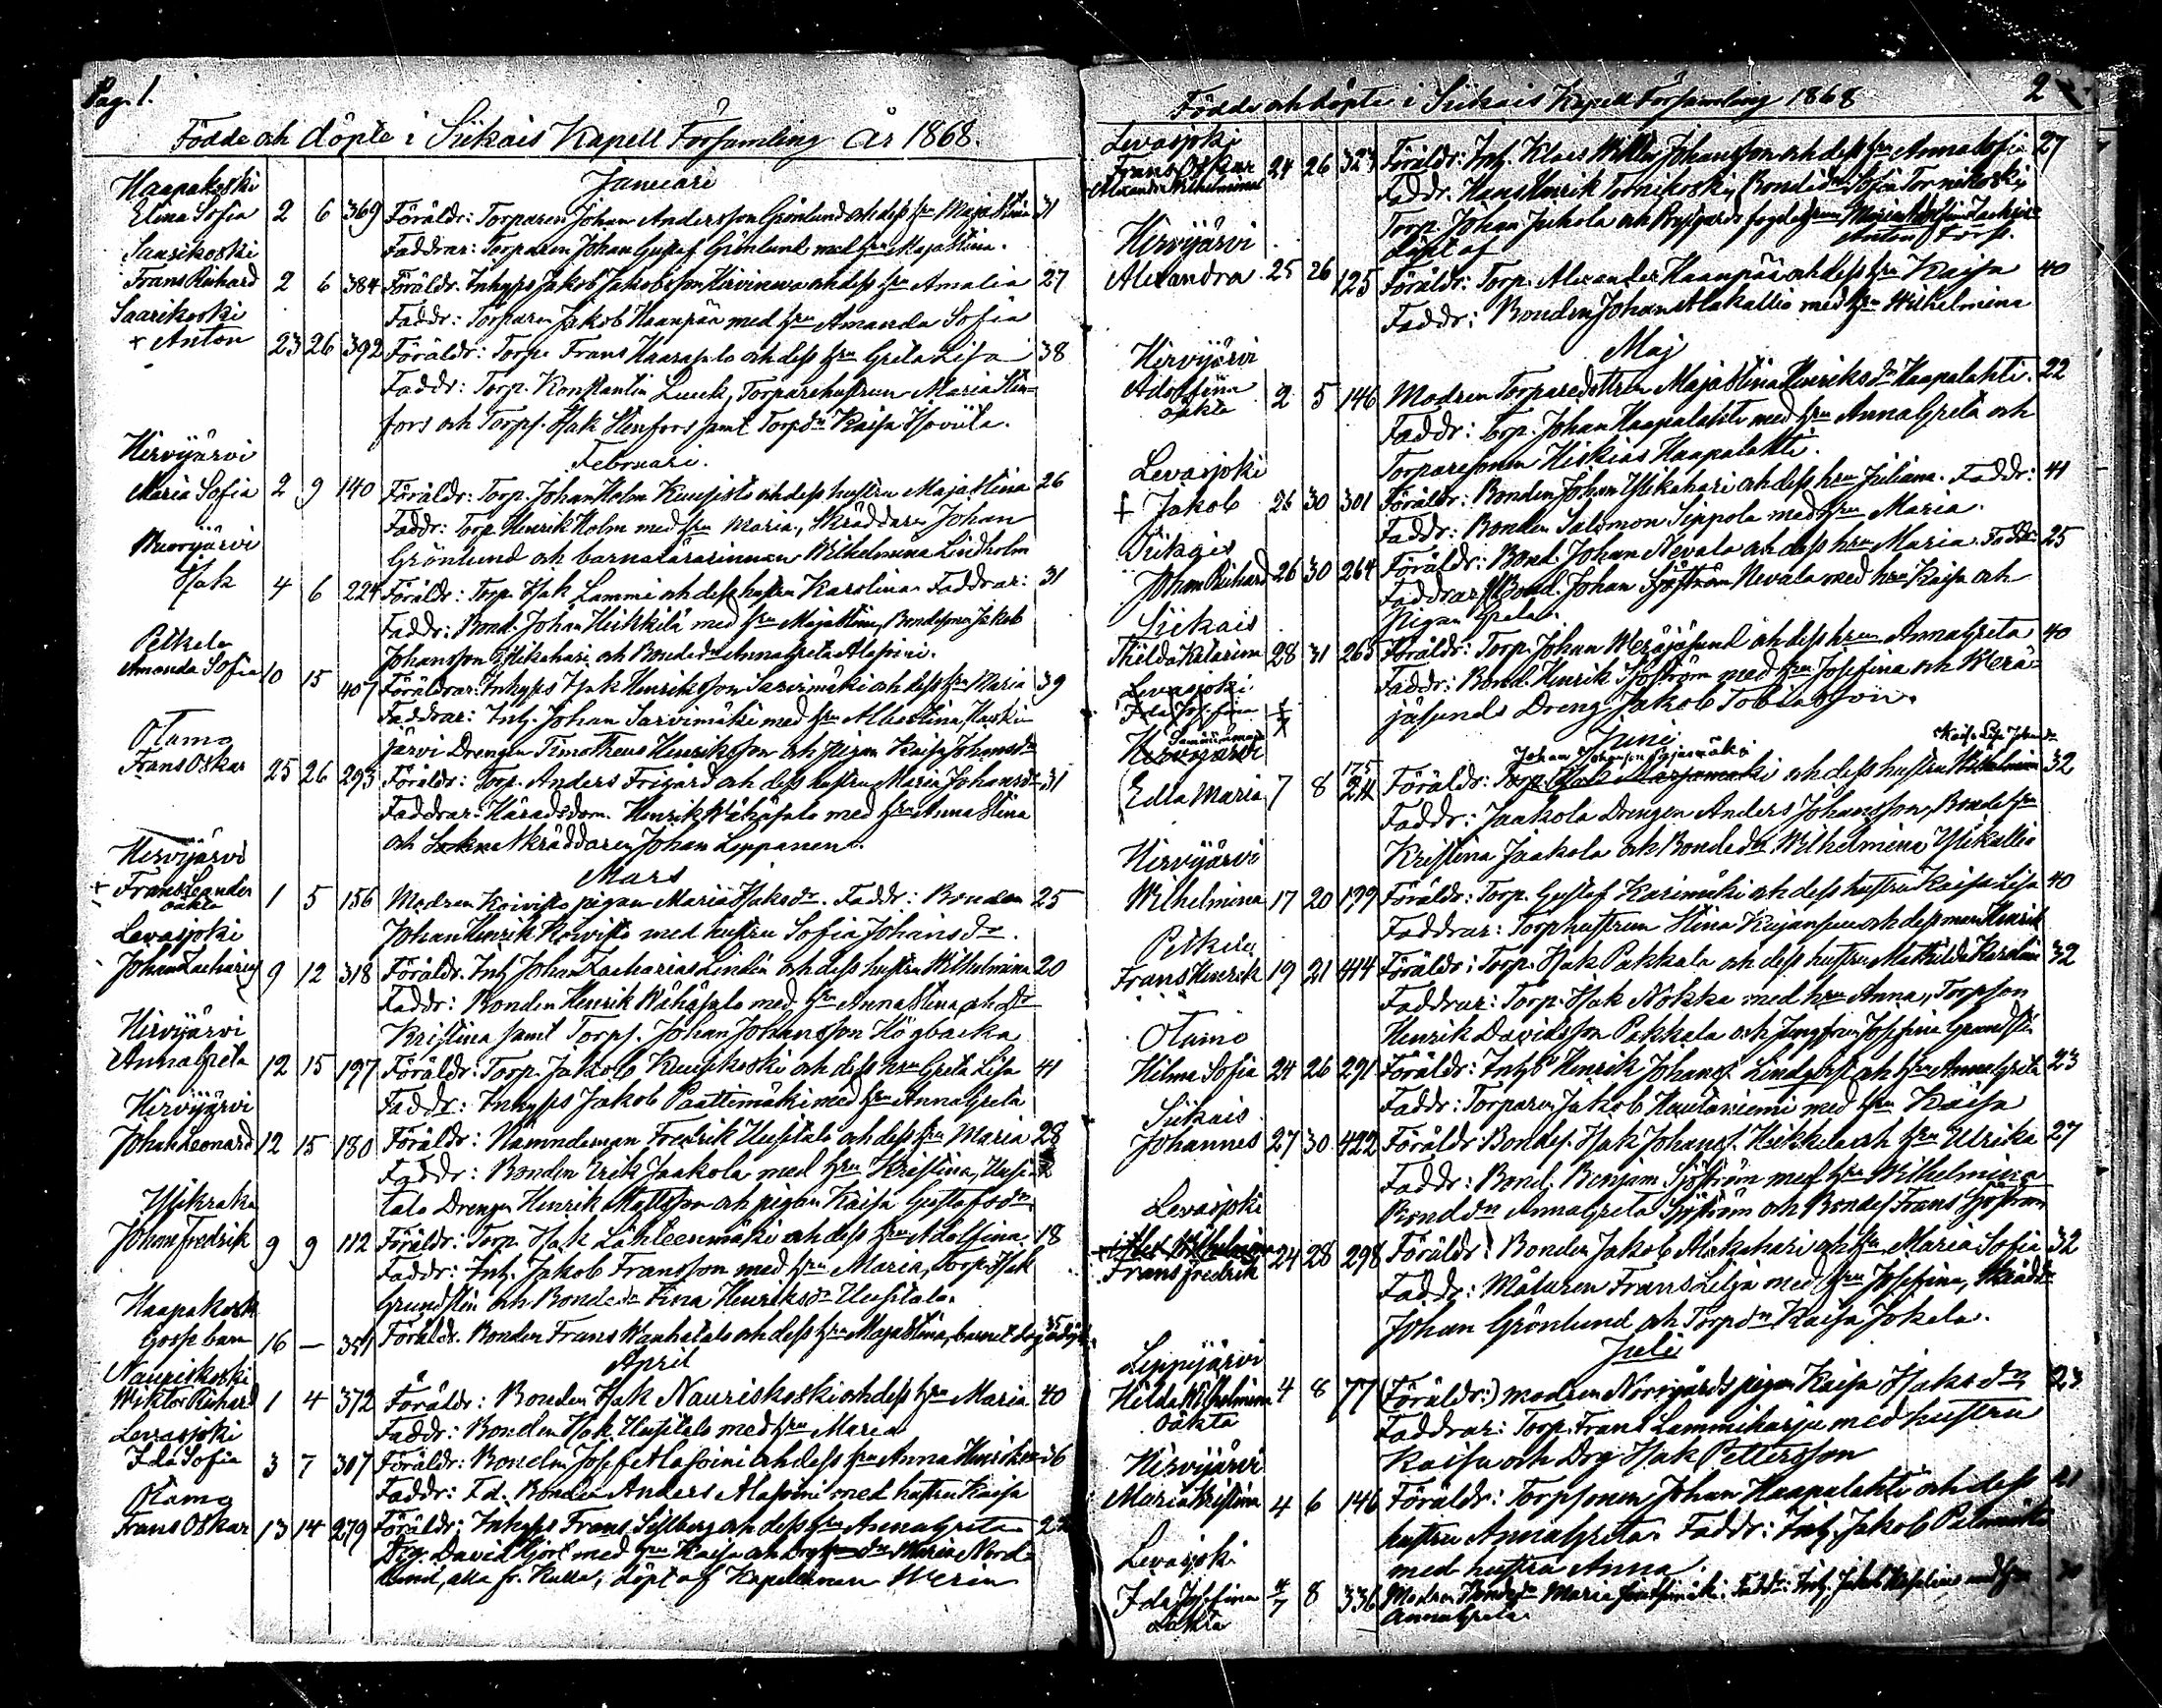 Pag. 1.
Födde och döpte i Siikais Kapell Församling år 1868.
Januari
Haapakoski
Elina Sofia 2 6 369 Föräldr: Torparen Johan Andersson Grönlund och dess hru Maja Stina 31
Faddrar: Torparen Johan Gustaf Grönlund med hru Maja Stina.
Saarikoski
Frans Richard 2 6 384 Föräldr. Inhyss Jakob Jakobsson Hirvineva och dess hru Amalia 27
Faddr: Torparen Jakob Haanpää med hru Amanda Sofia
Saarikoski
+ Anton 23 26 392 Föräldr: Torp. Frans Haarasilo och dess hru Greta Lisa 38
Faddr: Torp. Konstantin Luuk, Torparehustrun Maria Sten-
fors och Torps. Isak Stenfors samt Torpdr Kaisa
Februari.
Hirvijärvi
Maria Sofia 2 9 140 Föräldr: Torp. Johan Holm Kuusisto och dess hustru Maja Stina 26
Faddr: Torp. Henrik Holm med hru Maria, Skräddaren Johan
Grönlund och barnalärarinnan Wilhelmina Lindholm
Isak 4 6 224 Föräldr: Torp. Isak Lammi och dess hustru Karolina. Faddrar: 31
Faddr: Bond. Johan Heikkilä med hru Maja Stina, Bondesonen Jakob
Johansson Ylikahari och Bondedr Anna Greta Alasoini.
Petkele
Amanda Sofia 10 15 407 Föräldrar: Inhyss Isak Henriksson Sarvimäki och dess hru Maria 39
Faddrar: Inh. Johan Sarvimäki med hru Albertina
järvi Drengen Timotheus Henriksson och pigan Kaisa Johansdr
Otamo
Frans Oskar 25 26 293 Föräldr: Torp. Anders Frigård och dess hustru Maria Johansdr 31
Faddrar: Häradsdom. Henrik Wähäsalo med hru Anna Stina
och Sockneskräddaren Johan Leppänen.
Mars
Hirvijärvi
+ Frans Leander
oäkta 1 5 156 Modren Koivisto pigan Maria Isaksdr. Faddr: Bonden 25
Johan Henrik Koivisto med hustru Sofia Johansdr.
Levasjoki
Johan Zacharias 9 12 318 Föräldr. Inh Johan Zacharias Lindén och dess hustru Wilhelmina 20
Faddr: Bonden Henrik Wähäsalo med hru Anna Stina och dr
Kristina samt Torps. Johan Johansson Högbacka
Hirvijärvi
Anna Greta 12 15 197 Föräldr: Torp. Jakob Kuusikoski och dess hru Greta Lisa 41
Faddr: Inhyss Jakob Paattimäki med hru Anna Greta
Hirvijärvi
Johan Leonard 12 15 180 Föräldr: Nämndeman Fredrik Uusitalo och dess hru Maria 28
Faddr: Bonden Erik Jaakola med hru Kristina, Uusi-
talo Drengen Henrik Mattsson och pigan Kaisa Gustafsdr
Johan Fredrik 9 9 112 Föräldr: Torp. Isak Lähteenmäki och dess hru Adolfina. 18
Faddr: Inh. Jakob Fransson med hru Maria, Torp. Isak
Grundstén och Bondedr Fina Henriksdr Uusitalo.
Haapakoski
Gosse barn 16 — Föräldr. Bonden Frans Wanhatalo och dess hru Maja Stina, barnet 35
April
Nauriskoski
Wiktor Richard 1 4 372 Föräldr: Bonden Isak Nauriskoski och dess hru Maria 40
Faddr: Bonden Isak Uusitalo med hru Maria
Levasjoki
Ida Sofia 3 7 307 Föräldr: Bonden Josef Alasoini och dess hru Anna Henriksdr 36
Faddr: F.d. Bonden Anders Alasoini med hustru Kaisa
Otamo
Frans Oskar 13 14 279 Föräldr: Inhyss Frans Sillberg och dess hru Anna Greta
Drg. David Hjort med hru Kaisa och Maria Nord-
lund, alla fr. Kulla; döpt af Kapellanen Werin
Födde och döpte i Siikais Kapell Församling 1868 2
Levasjoki
Frans Oskar 24 26 323 Föräldr: Inh. Klas Wilhelm Johansson och dess hru Anna Sofia 27
Alexander Wilhelmina
Faddr. Hans Henrik Tornikoski, Bondedr Sofia Tornikoski
Torp. Johan Jaakola och
Döpt af Anton
Hirvijärvi
Alexandra 25 26 125 Föräldr: Torp. Alexander Haanpää och dess hru Kaisa 40
Faddr: Bonden Johan Alakallio med hru Wilhelmina
Maj
Hirvijärvi
Adolfina
oäkta 2 5 146 Modren Torparedottren Maja Stina Henriksdr Haapalahti. 22
Faddr: Torp. Johan Haapalahti med hru Anna Greta och
Torparesonen Hiskias Haapalahti.
Levasjoki
+ Jakob 26 30 301 Föräldr: Bonden Johan Ylikahari och dess hru Juliana. Faddr: 41
Faddr: Bonden Salomon Sippola med hru Maria.
Siikais
Johan Richard 26 30 264 Föräldr: Bond. Johan Nevala och dess hru Maria. Faddr 25
Faddrar: Bond. Johan Sjöström Nevala med hru Kaisa och
Pigan Greta.
Siikais
Hilda Katarina 28 31 265 Föräldr: Torp. Johan Meräjäsund och dess hru Anna Greta 40
Faddr: Bond. Henrik Sjöström med hru Josefina och Merä-
jäsunds Dreng Jakob Tobiasson.
Levasjoki
Ida Josefina
Juni
Sammi
Hirvijärvi
Johan Johansson Kaisa Lisa Johansdr
Edla Maria 7 8 175 Föräldr: Torp. Isak och dess hustru Wilhelmina 32
Faddr: Jaakola Drengen Anders Johansson, Bondehru
Kristina Jaakola och Bondedr Wilhelmina Ylikallio
Hirvijärvi
Wilhelmina 17 20 199 Föräldr: Torp. Gustaf Karimäki och dess hustru Kaisa Lisa 40
Faddrar: Torphustrun Stina Kujansuu och dess man Henrik
Frans Henrik 19 21 414 Föräldr: Torp. Isak Pakkala och dess hustru Mathilda Karolina 32
Faddrar: Torp. Isak Nokka med hru Anna, Torpson
Henrik Davidsson Pakkala och Jungfrun Josefina Grundstén
Otamo
Hilma Sofia 24 26 291 Föräldr: Inhys Henrik Johanss. Lindqvist och hru Anna Greta 23
Faddr: Torparen Jakob Hautaniemi med hru Kaisa
Siikais
Johannes 27 30 422 Föräldr: Bondes. Isak Johanss. Heikkilä och hru Ulrika 27
Faddr: Bond. Benjam Sjöström med hru Wilhelmina
Bonddr Anna Greta Sjöström och Bondes. Frans Sjöström
Levasjoki
Frans Fredrik 24 28 298 Föräldr: Bonden Jakob Alakahari och hru Maria Sofia 32
Faddr: Målaren Frans Lilja med hru Josefina, Skräddn
Johan Grönlund och Torpdr Kaisa Jokela.
Juli
Leppijärvi
Hilda Wilhelmina 4 8 77 (Föräldr:) modren Norrgårds pigan Kaisa Isaksdr 23
oäkta
Faddrar: Torp. Frans Lammiharju med hustru
Kaisa och Drg Isak Pettersson
Hirvijärvi
Maria Kristina 4 6 146 Föräldr: Torpsonen Johan Haapalahti och dess 21
hustru Anna Greta. Faddr: Inh. Jakob Palomäki
med hustru Anna.
Levasjoki
Ida Josefina 4/7 8 336 Modren Bondedr Maria Faddr: Inh. Jakob med hru
oäkta
Anna Greta